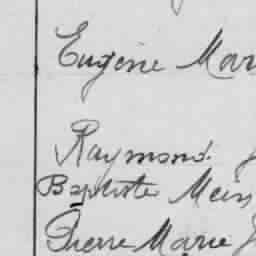 Eugène Mar
Raymond. J
Baptiste Mein
Pierre Marie J